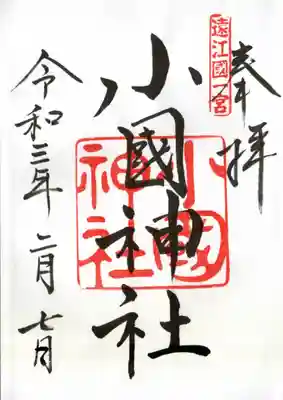 奉拝
遠江國一宮
小國神社
小國神社
令和三年 二月 七日